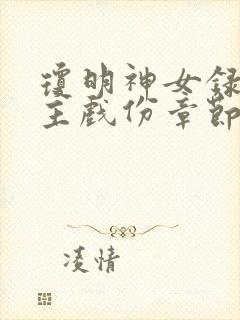 瓊明神女錄
主戲份章節
凌情